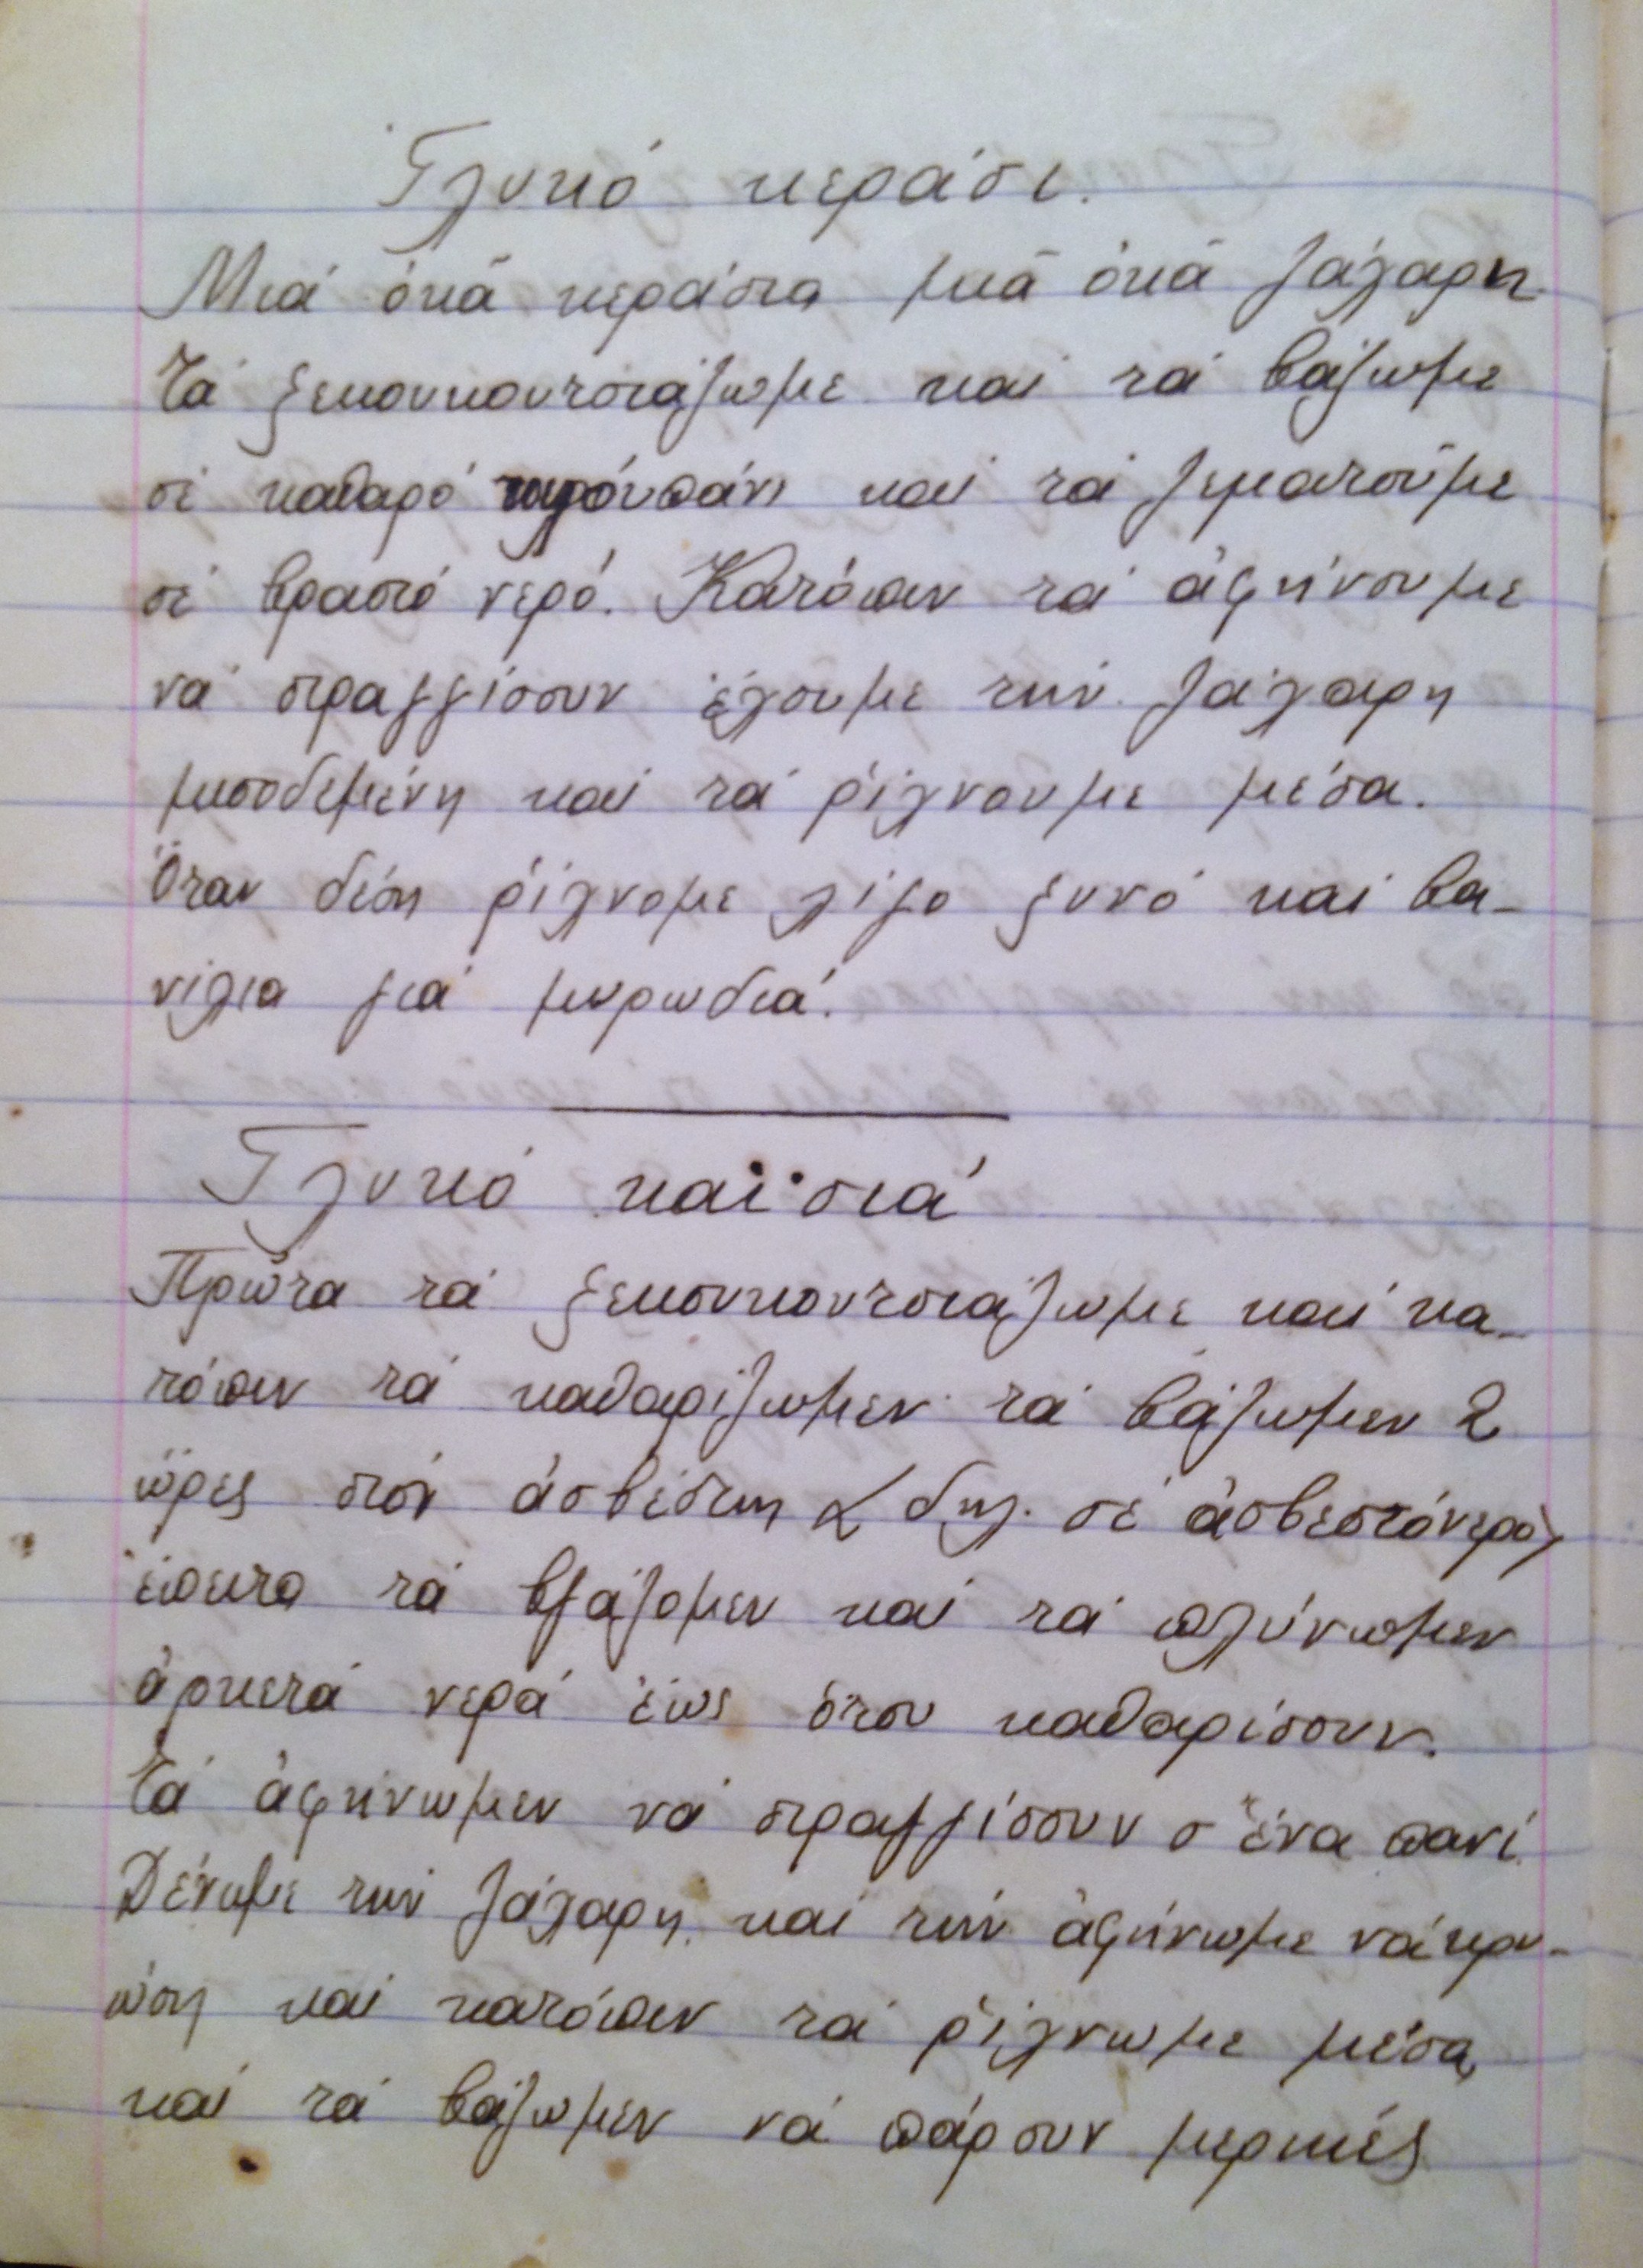 Γλυκό κεράσι.
Μιά ὀκᾶ κεράσια μιᾶ ὀκᾶ ζάχαρη
Τά ξεκουκουτσιάζωμε καί τά βάζωμε
σέ καθαρό καί τά ζεματοῦμε
σέ βραστό νερό. Κατόπιν τά ἀφήνουμε
νά στραγγίσουν ἔχουμε τήν ζάχαρη
μισοδεμένη καί τά ρίχνουμε μέσα.
Ὅταν δέση ρίχνομε λίγο ξυνό καί βα-
νίλια γιά μυρωδιά.
Γλυκό καϊσιά
Πρῶτα τά ξεκουκουτσιάζωμε καί κα-
τόπιν τά καθαρίζωμεν τά βάζωμεν 2
ὥρες στόν ἀσβέστη (δηλ. σέ ἀσβεστόνερο)
ἔπειτα τά βγάζομεν καί τά πλύνωμεν
ἀρκετά νερά ἕως ὅτου καθαρίσουν.
Τά ἀφήνωμεν νά στραγγίσουν σ' ἕνα πανί.
Δένωμε τήν ζάχαρη καί τήν ἀφήνωμε νά κρυ-
ώση καί κατόπιν τά ρίχνωμε μέσα
καί τά βάζωμεν νά πάρουν μερικές